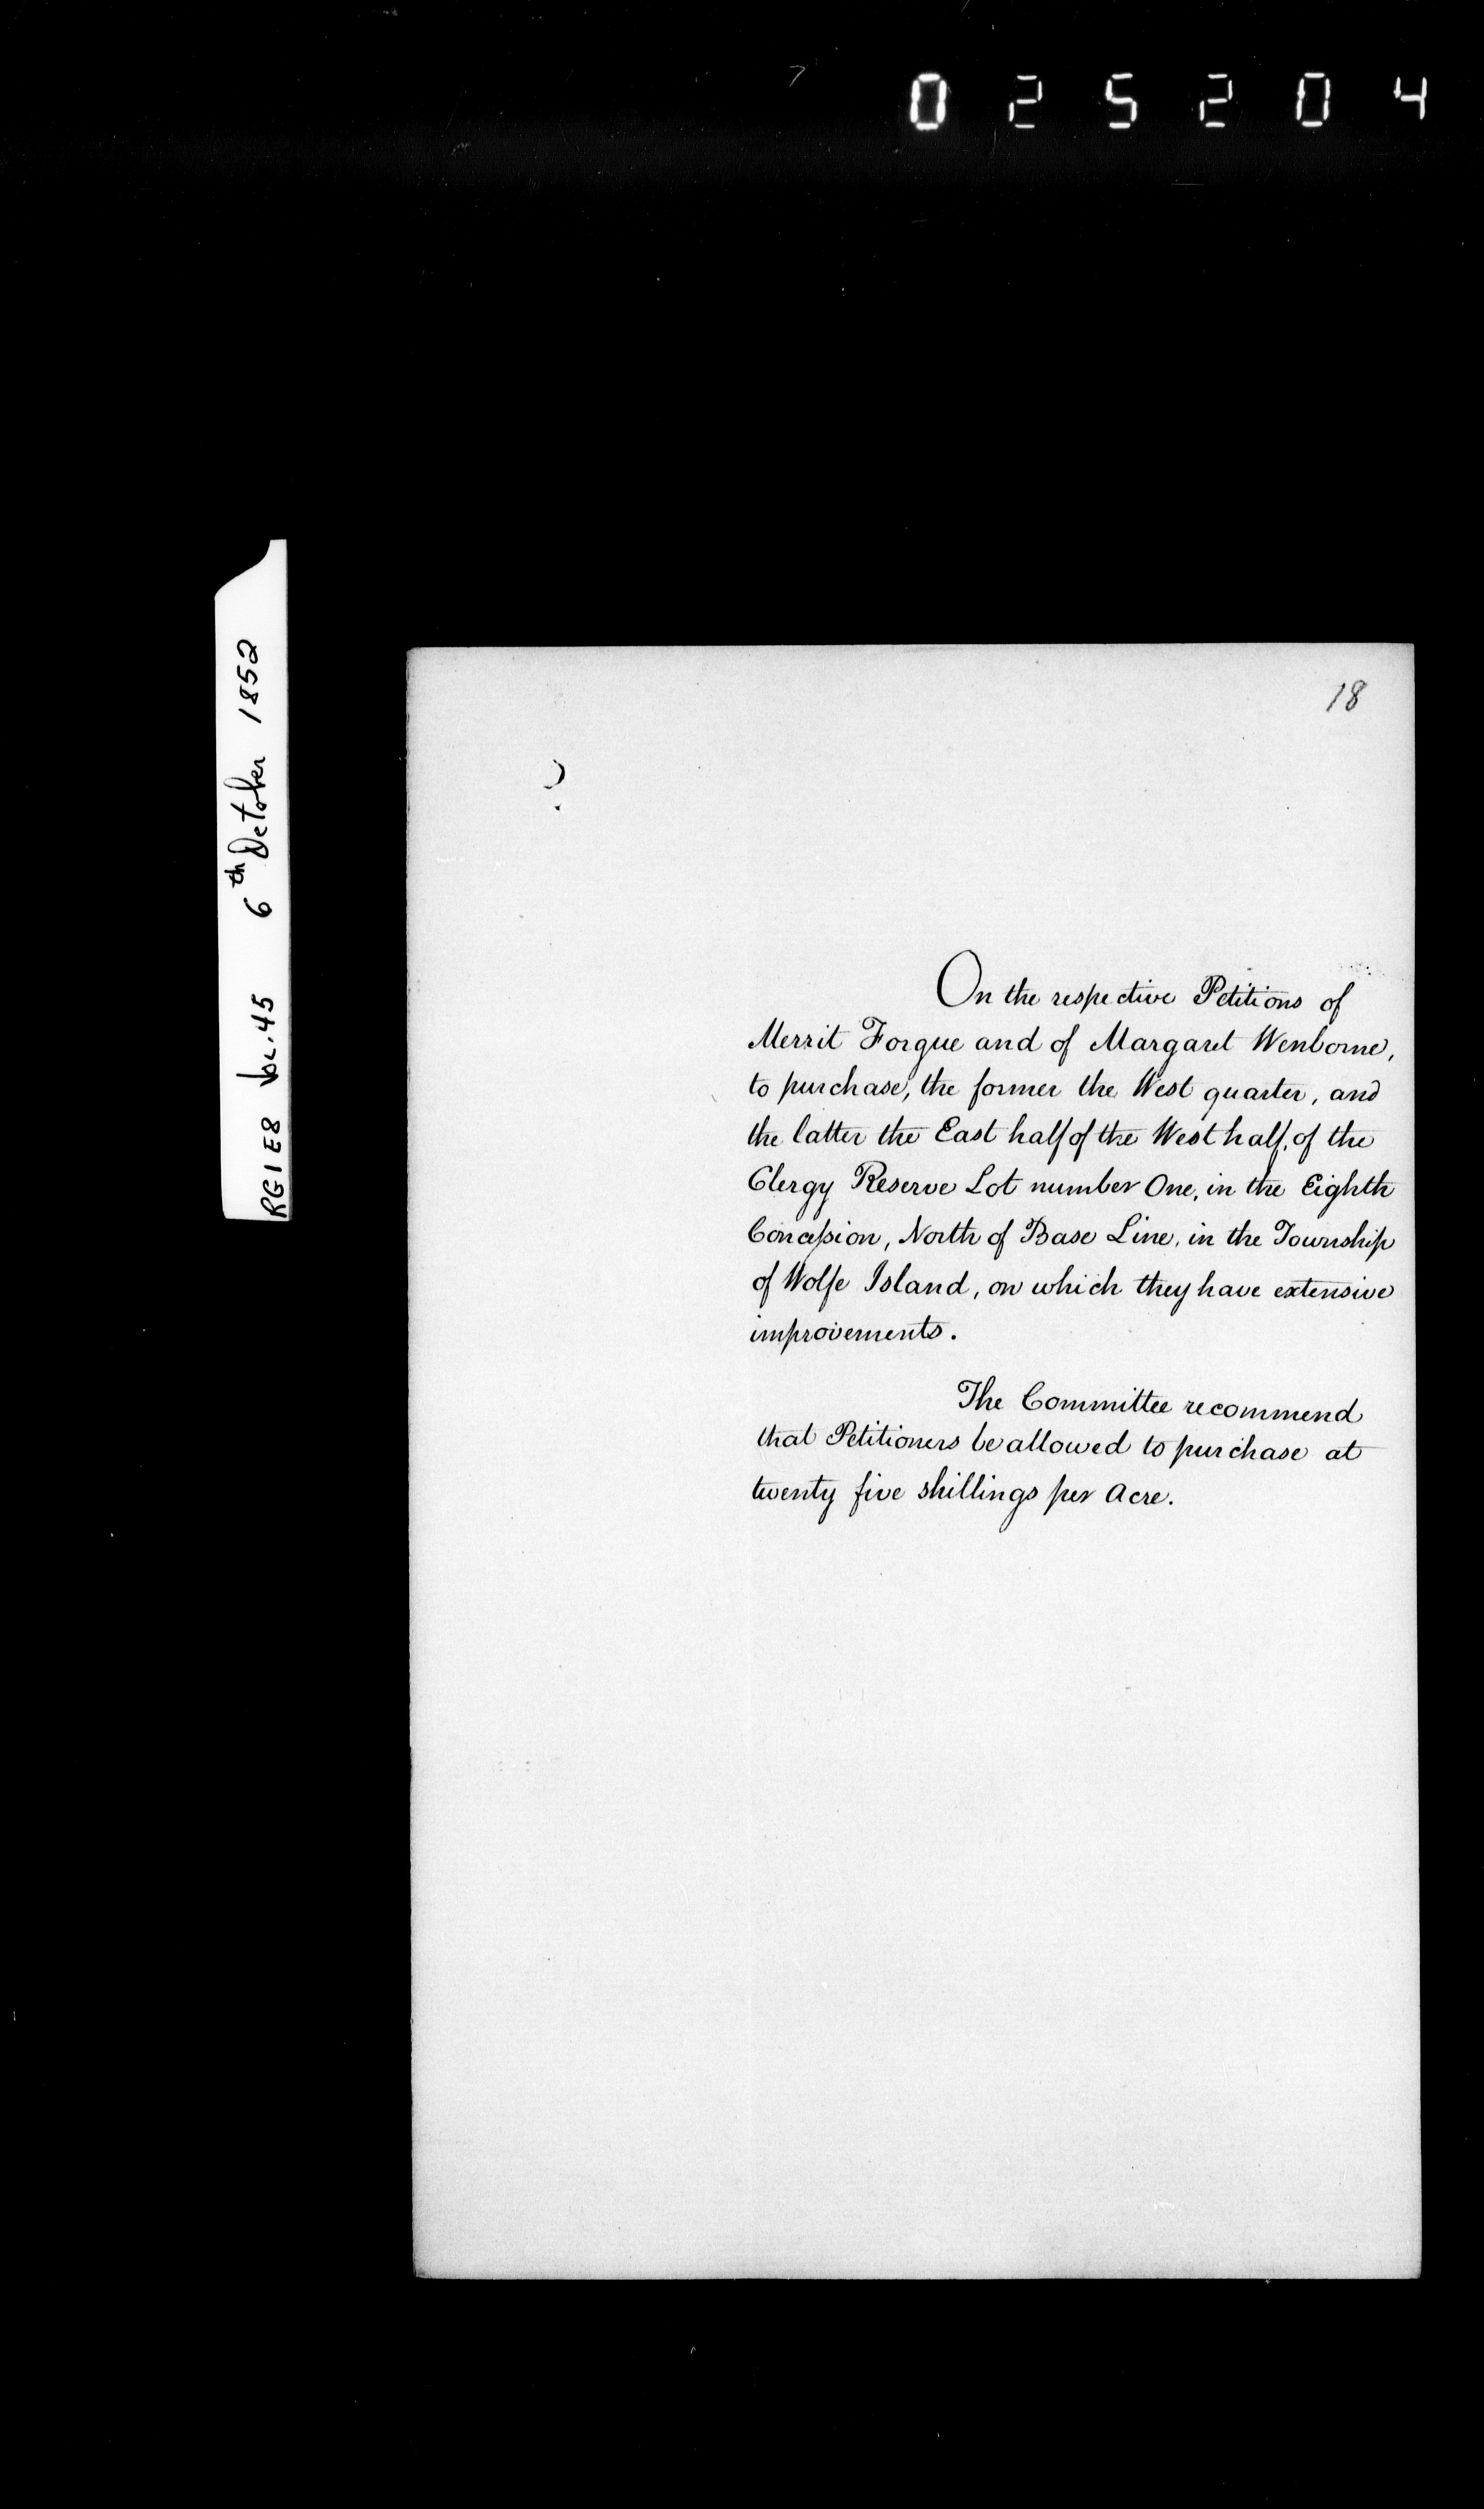 025204
RG1E8 Vol.45 6th October 1852
18
On the respective Petitions of
Merrit Forgue and of Margaret Wenborne,
to purchase, the former the West quarter, and
the latter the East half of the West half, of the
Clergy Reserve Lot number One, in the Eighth
Concession, North of Base Line, in the Township
of Wolfe Island, on which they have extensive
improvements.
The Committee recommend
that Petitioners be allowed to purchase at
twenty five shillings per Acre.